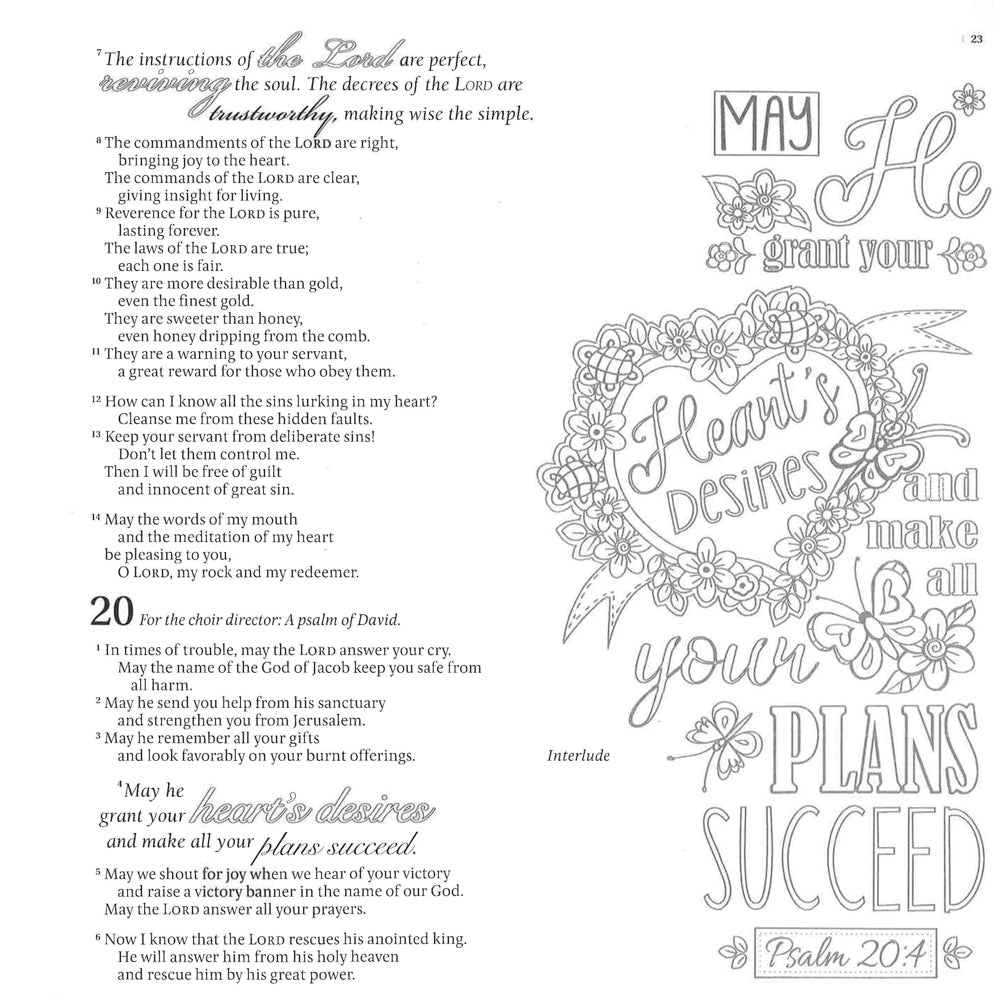 23
⁷ The instructions of the Lord are perfect,
reviving the soul. The decrees of the LORD are
trustworthy, making wise the simple.
⁸ The commandments of the LORD are right,
bringing joy to the heart.
The commands of the LORD are clear,
giving insight for living.
⁹ Reverence for the LORD is pure,
lasting forever.
The laws of the LORD are true;
each one is fair.
¹⁰ They are more desirable than gold,
even the finest gold.
They are sweeter than honey,
even honey dripping from the comb.
¹¹ They are a warning to your servant,
a great reward for those who obey them.
¹² How can I know all the sins lurking in my heart?
Cleanse me from these hidden faults.
¹³ Keep your servant from deliberate sins!
Don't let them control me.
Then I will be free of guilt
and innocent of great sin.
¹⁴ May the words of my mouth
and the meditation of my heart
be pleasing to you,
O LORD, my rock and my redeemer.
20 For the choir director: A psalm of David.
¹ In times of trouble, may the LORD answer your cry.
May the name of the God of Jacob keep you safe from
all harm.
² May he send you help from his sanctuary
and strengthen you from Jerusalem.
³ May he remember all your gifts
and look favorably on your burnt offerings. Interlude
⁴ May he
grant your heart's desires
and make all your plans succeed.
⁵ May we shout for joy when we hear of your victory
and raise a victory banner in the name of our God.
May the LORD answer all your prayers.
⁶ Now I know that the LORD rescues his anointed king.
He will answer him from his holy heaven
and rescue him by his great power.
MAY He
grant your
Heart's
DESiRES
and
make
all
your
PLANS
SUCCEED
Psalm 20:4